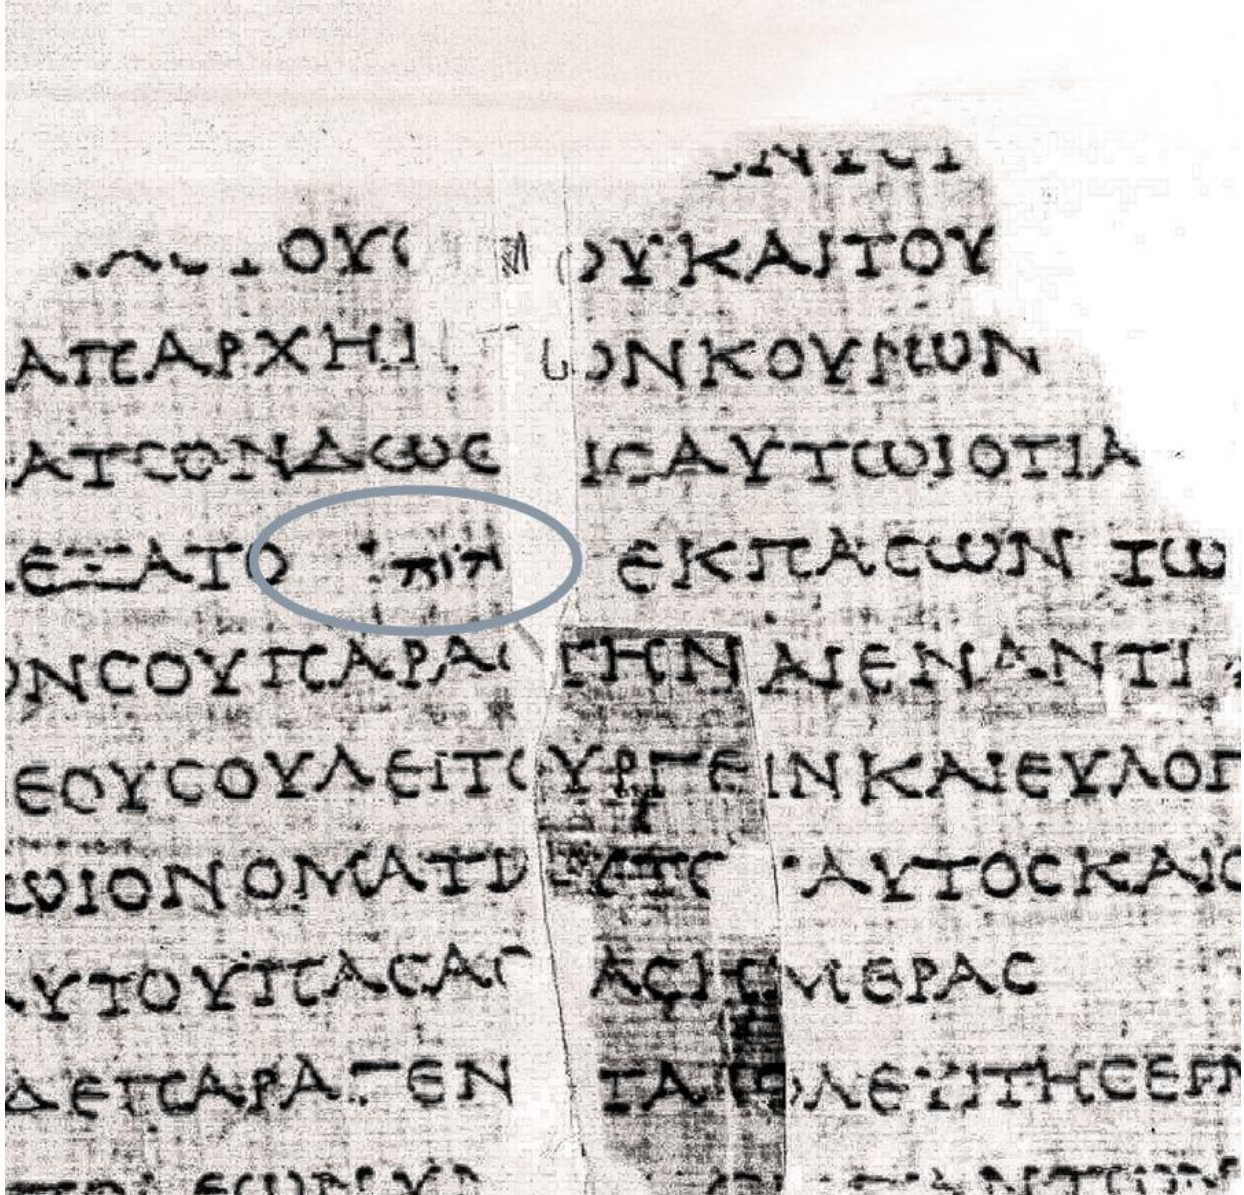 ΟΥϹ ΟΥΚΑΙΤΟΥ
ΑΠΑΡΧΗ ΩΝΚΟΥΡΩΝ
ΑΤΩΝΔΩϹΕ ΙϹΑΥΤΩΙΟΤΙΑ
ΕΞΑΤΟ יהוה ΕΚΠΑϹΩΝ ΤΩ
ΟΝϹΟΥΠΑΡΑϹ ΤΗΝΑΙΕΝΑΝΤΙ
ΕΟΥϹΟΥΛΕΙΤΟΥΡΓΕΙΝΚΑΙΕΥΛΟΓ
ΩΙΟΝΟΜΑΤΙ ΑΥΤΟ ΑΥΤΟϹΚΑΙΟ
ΑΥΤΟΥΠΑϹΑϹ ΑϹ ΗΜΕΡΑϹ
ΔΕΠΑΡΑΓΕΝ ΤΑΙΟΛΕΥΙΤΗϹΕΓ